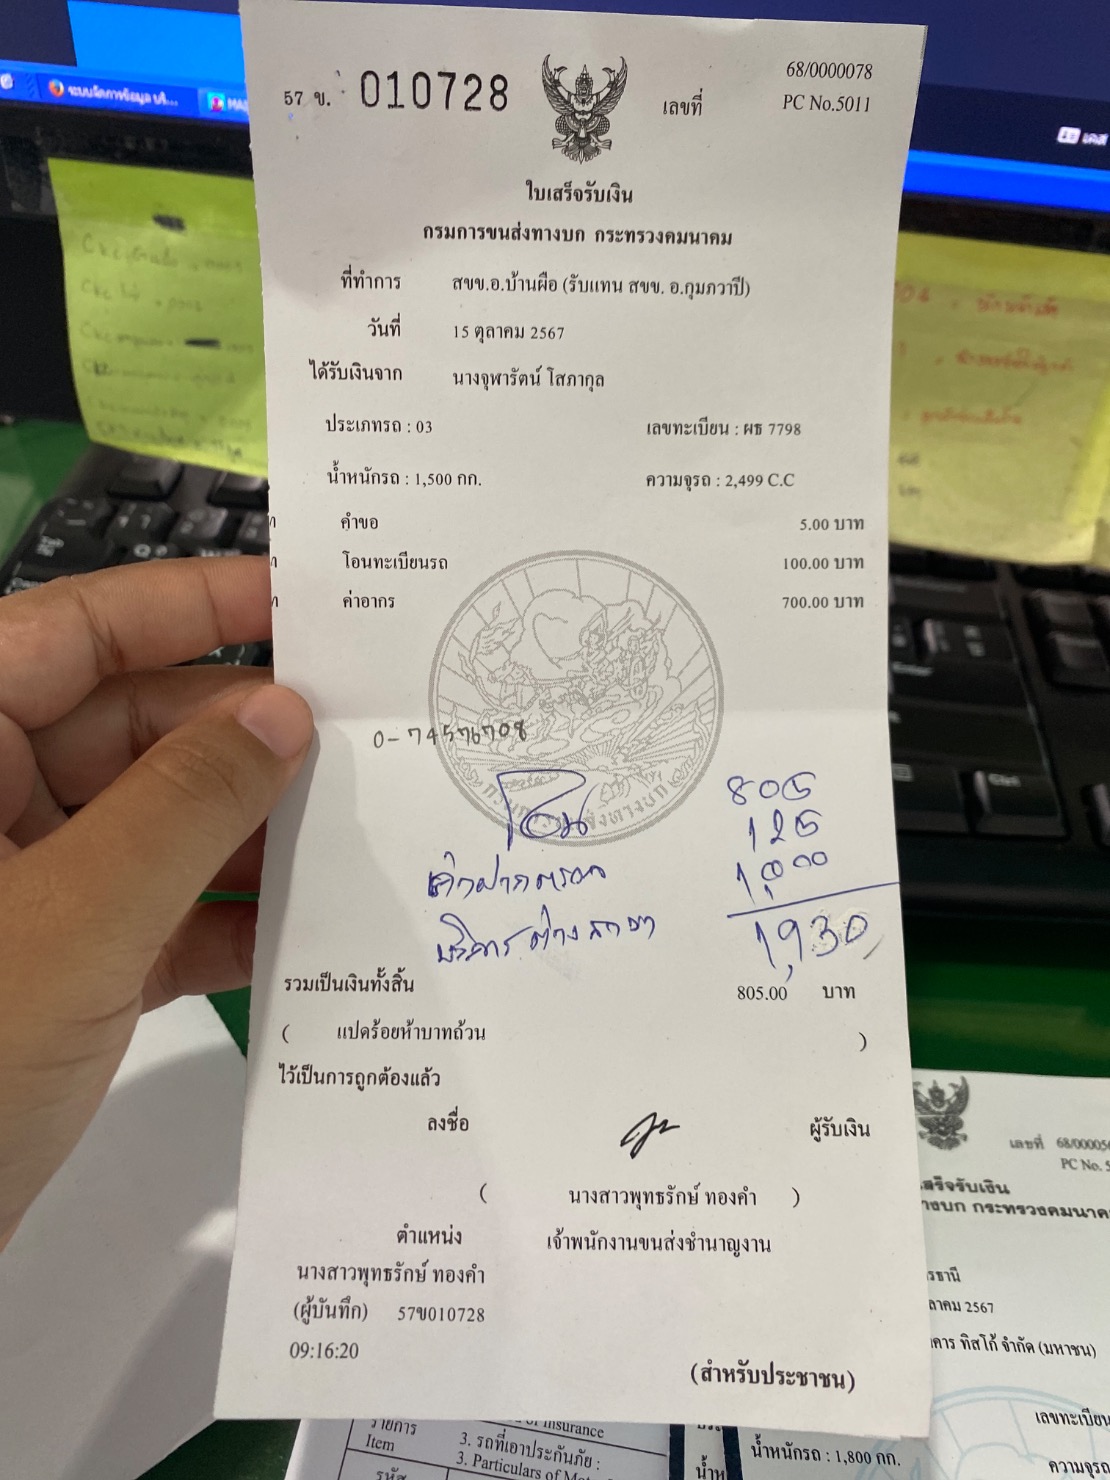 ระบบจัดการข้อมูล บริ...
57 ข. 010728
เลขที่
68/0000078
PC No.5011
ใบเสร็จรับเงิน
กรมการขนส่งทางบก กระทรวงคมนาคม
ที่ทำการ สขข.อ.บ้านผือ (รับแทน สขข. อ.กุมภวาปี)
วันที่ 15 ตุลาคม 2567
ได้รับเงินจาก นางจุฬารัตน์ โสภากุล
ประเภทรถ : 03 เลขทะเบียน : ผธ 7798
น้ำหนักรถ : 1,500 กก. ความจุรถ : 2,499 C.C
คำขอ 5.00 บาท
โอนทะเบียนรถ 100.00 บาท
ค่าอากร 700.00 บาท
0-74576708
โอน 805
ค่าฝากตรวจ 125
บริการต่างสาขา 1,000
1,930
รวมเป็นเงินทั้งสิ้น 805.00 บาท
( แปดร้อยห้าบาทถ้วน )
ไว้เป็นการถูกต้องแล้ว
ลงชื่อ ผู้รับเงิน
( นางสาวพุทธรักษ์ ทองคำ )
ตำแหน่ง เจ้าพนักงานขนส่งชำนาญงาน
นางสาวพุทธรักษ์ ทองคำ
(ผู้บันทึก) 57ข010728
09:16:20
(สำหรับประชาชน)
เลขที่ 68/000050
PC No. 5
เสร็จรับเงิน
างบก กระทรวงคมนาคม
รธานี
ลาคม 2567
คาร ทิสโก้ จำกัด (มหาชน)
เลขทะเบียน
น้ำหนักรถ : 1,800 กก.
ความจุรถ
of Insurance
รายการ
Item
3. รถที่เอาประกันภัย :
3. Particulars of
รหัส